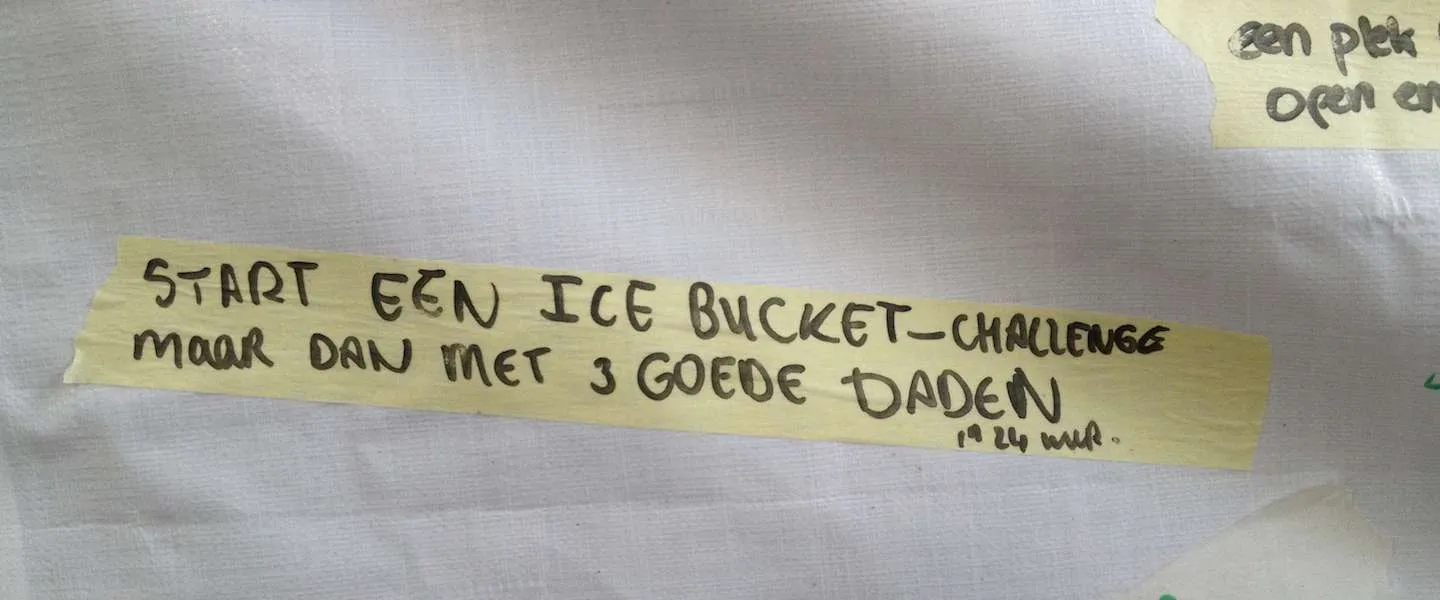 een plek
open en
START EEN ICE BUCKET-CHALLENGE
MAAR DAN MET 3 GOEDE DADEN
in 24 uur.